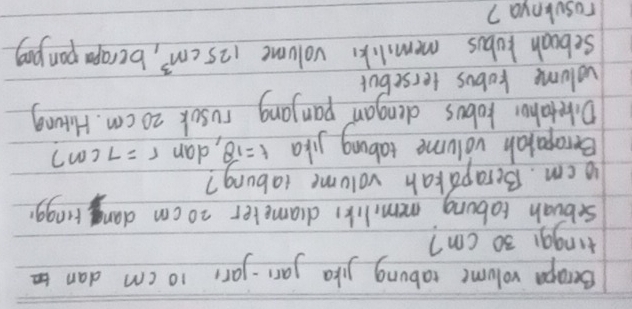 Berapa volume tabung jika jari-jari 10 cm dan
tinggi 30 cm?
Sebuah tabung memiliki diameter 20 cm dan tinggi
10 cm. Berapakah volume tabung?
Berapakah volume tabung jika t=18, dan r = 7 cm?
Diketahui kubus dengan panjang rusuk 20 cm. Hitung
volume kubus tersebut
Sebuah kubus memiliki volume 125 cm³, berapa panjang
rusuknya?